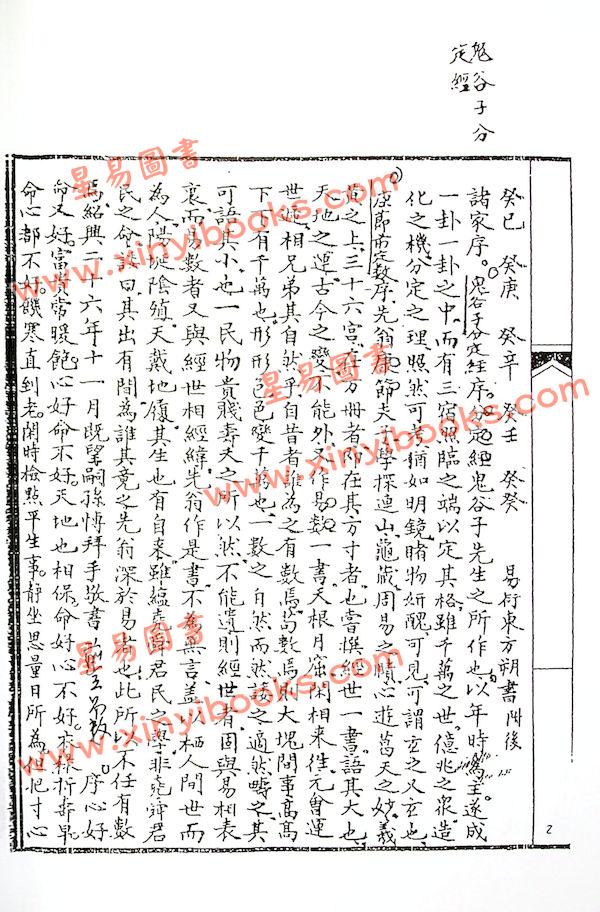 鬼谷子分
定經
癸巳 癸庚 癸辛 癸壬 癸癸 易衍東方朔書 後
諸家序。鬼谷子分定經序。分定經鬼谷子先生之所作也以年時為主遂成
一卦一卦之中而有三宿照臨之端以定其格雖千萬之世億兆之衆造
化之機分定之理照然可考猶如明鏡睹物妍醜可見可謂玄之又玄也
康節前定數序先翁康節夫子學探連山龜藏周易之賾心遊葛天之妙羲
黄之上三十六宮在方冊者即在其方寸者也嘗撰經世一書語其大也
天地之運古今之變不能外又作易數一書天根月窟閑相來往元會運
世迹相兄弟其自然乎自昔者誰為之有數焉苟數焉則大塊間事高高
下下有千萬也形形色色變千萬也一數之自然而然接之適然疇之其
可語其小也一民物貴賤壽夭之所以然不能遺則經世者固與易相表
裏而易數者又與經世相經緯先翁作是書不為無言盖以栖人間世而
為人陽陞陰殖天戴地履其生也有自來雖蘊堯舜君民之學非堯舜君
民之命設曰其出有間為誰其竟之先翁深於易者也此所以不任有數
焉紹興二十六年十一月既望嗣孫博拜手敬書 序心好
命又好富貴常暖飽心好命不好天地也相保命好心不好
命心都不好饑寒直到老閑時檢點平生事靜坐思量日所為但把寸心
2
星易圖書
www.xinyibooks.com
星易圖書
www.xinyibooks.com
星易圖書
www.xinyibooks.com